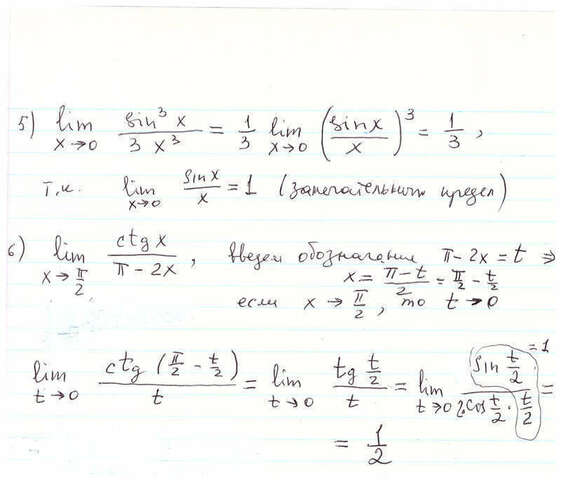 5) lim x→0 sin³x / 3x³ = 1/3 lim x→0 (sin x / x)³ = 1/3 ,
т.к. lim x→0 sin x / x = 1 (замечательный предел)
6) lim x→π/2 ctg x / π - 2x , введем обозначение π - 2x = t ⇒
x = π - t / 2 = π/2 - t/2
если x → π/2 , то t → 0
lim t→0 ctg (π/2 - t/2) / t = lim t→0 tg t/2 / t = lim t→0 sin t/2 / 2cos t/2 · t/2 =1 =
= 1/2